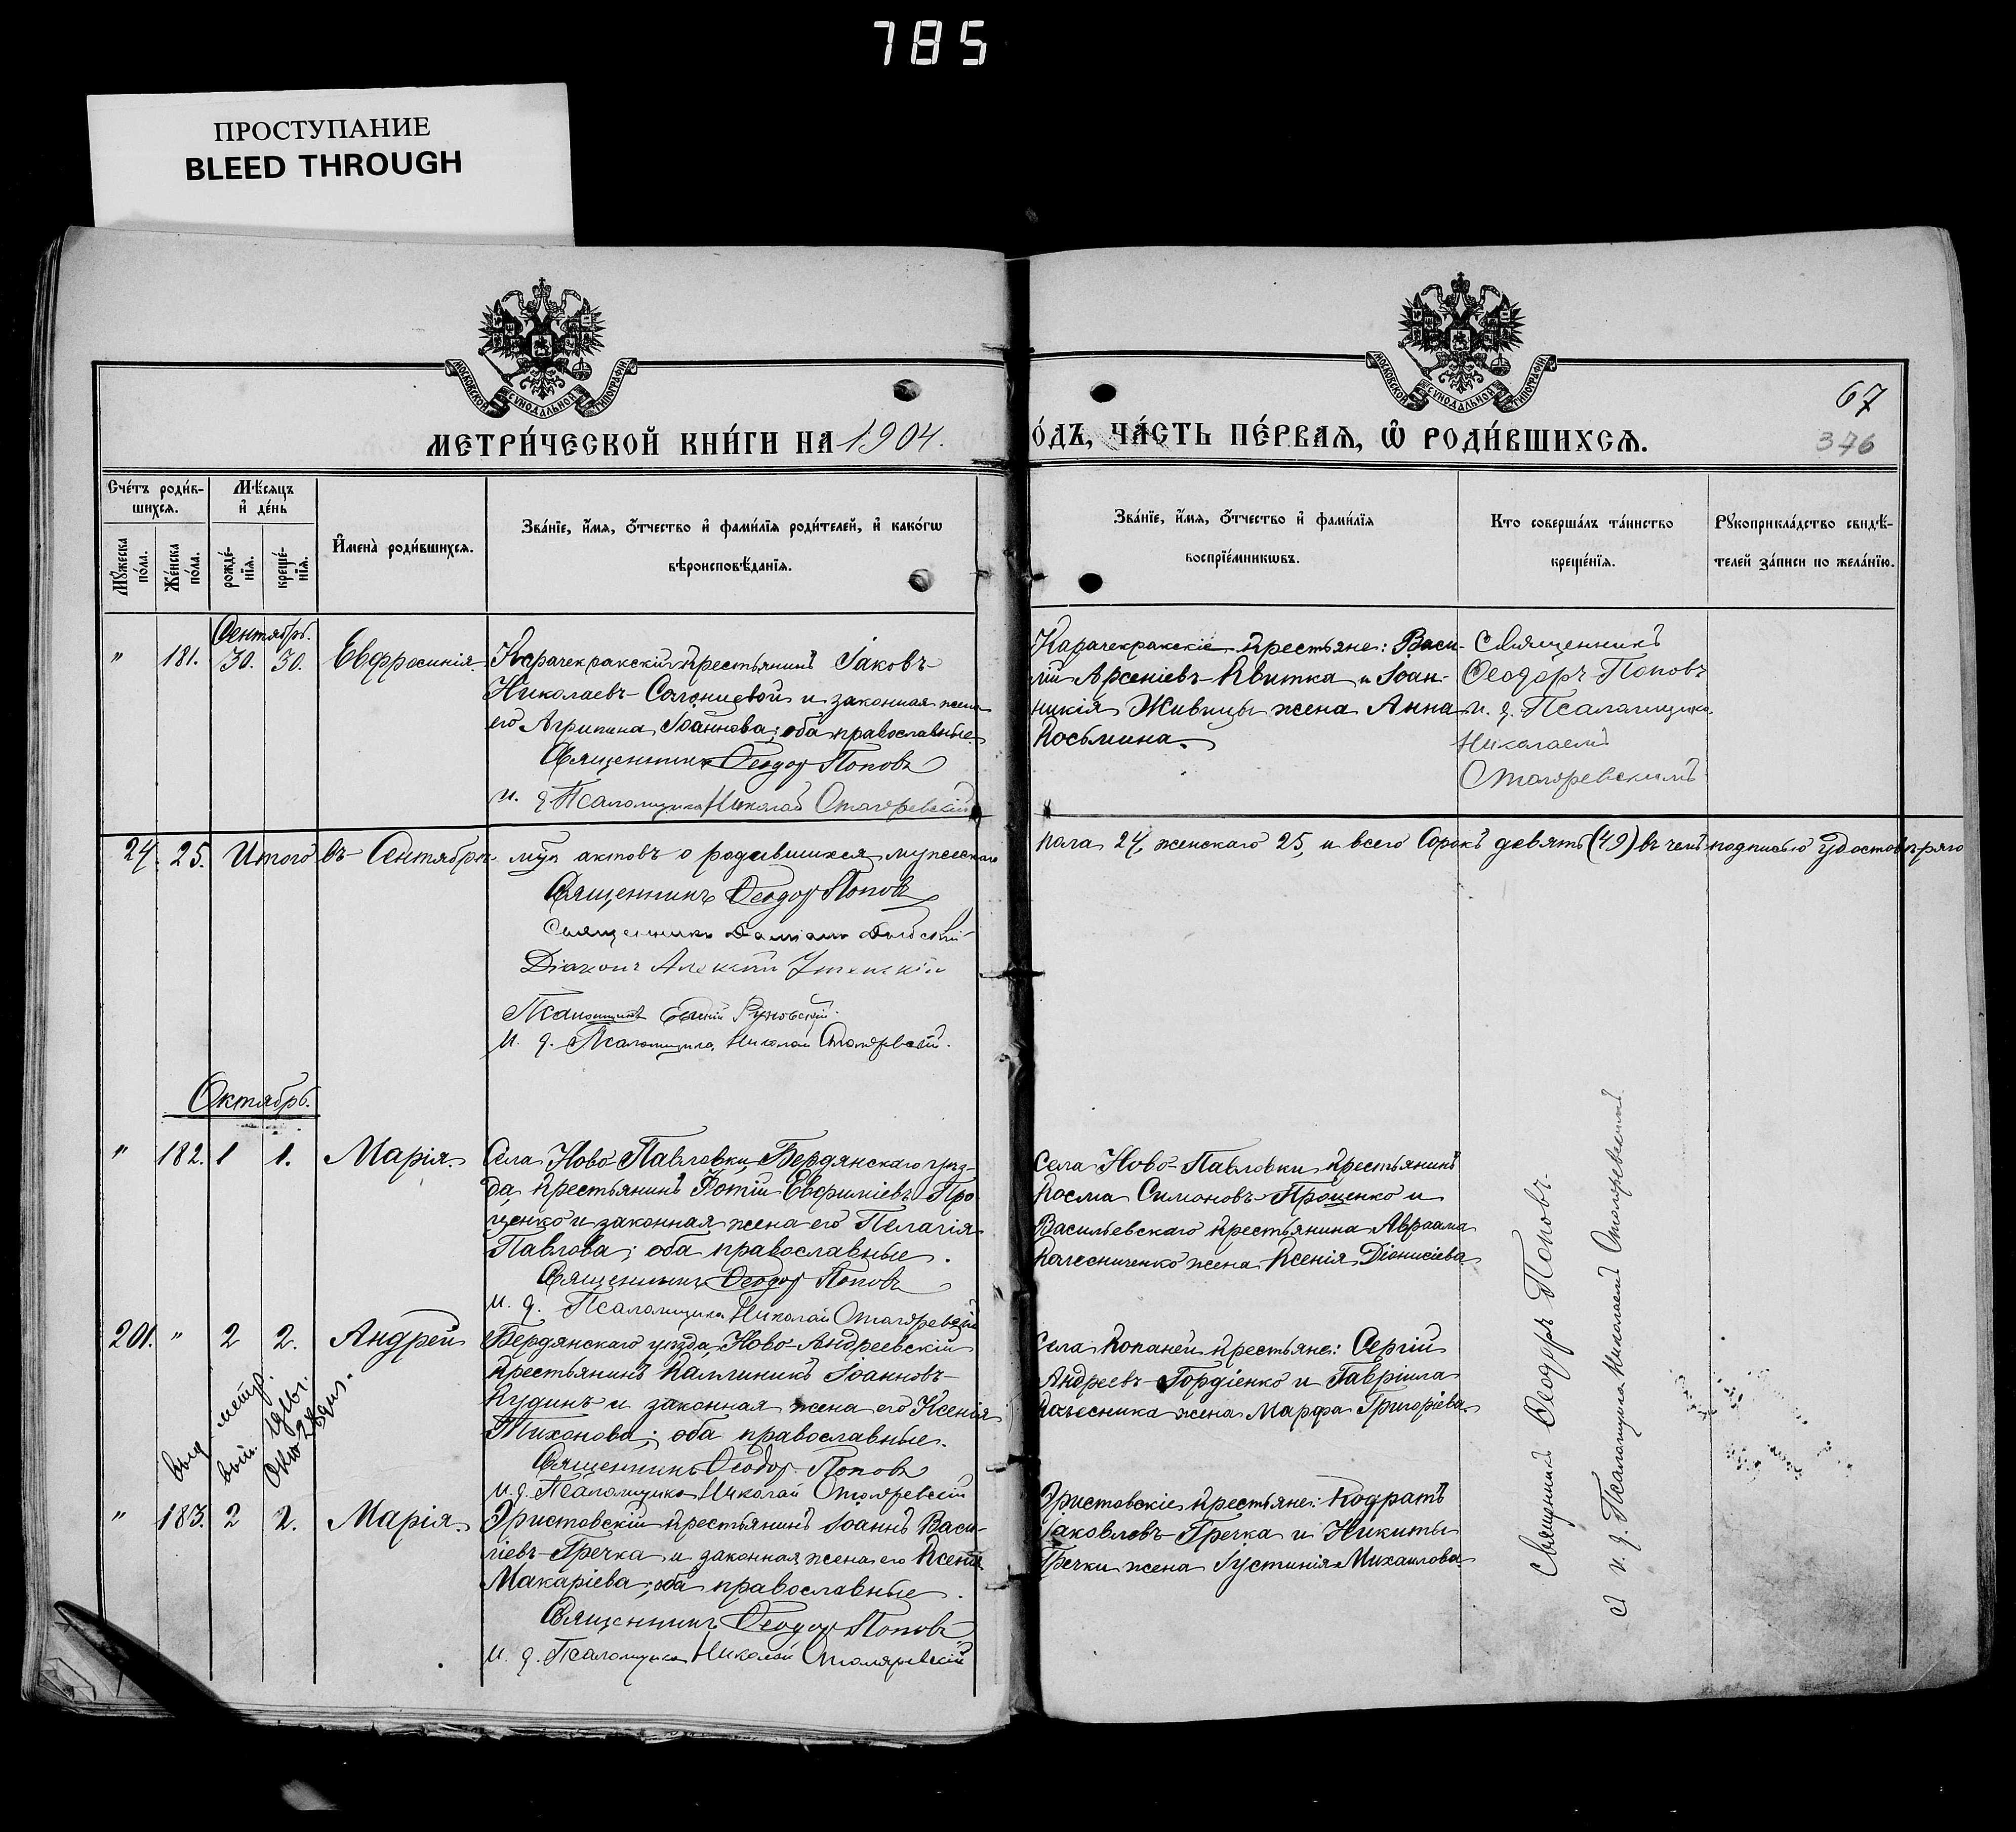 785
ПРОСТУПАНИЕ
BLEED THROUGH
МОСКОВСКОЙ СѴНОДАЛЬНОЙ ТИПОГРАФІИ
МОСКОВСКОЙ СѴНОДАЛЬНОЙ ТИПОГРАФІИ
67
376
МЕТРИ́ЧЕСКОЙ КНИ́ГИ НА 1904.
О́ДЪ, ЧА́СТЬ ПЕ́РВАЯ, Ѡ РОДИ́ВШИХСЯ.
Счéтъ роди́в-
шихся.
Мꙋ́жеска
по́ла.
Жéнска
по́ла.
Мѣ́сяцъ
и҆ дéнь
рождé-
нїя.
крещé-
нїя.
И҆менà роди́вшихся.
Звáнїе, и҆́мя, ѻ҆́тчество и҆ фами́лїя роди́телей, и҆ какóгѡ
вѣроисповѣ́данїя.
Звáнїе, и҆́мя, ѻ҆́тчество и҆ фами́лїя
воспрїéмникѡвъ.
Кто совершáлъ тáинство
крещéнїя.
Рꙋкоприклáдство свидѣ́-
телей зáписи по желáнїю.
Сентябрь.
" 181. 30. 30. Евфросинія.
Карачекракскій крестьянинъ Іаковъ
Николаевъ Солонцевой и законная жена
его Агрипина Іоаннова; оба православные.
Священникъ Ѳеодоръ Поповъ
и. д. Псаломщика Николай Столяревскій
Карачекракскіе крестьяне: Васи-
лій Арсеніевъ Квитка и Іоан-
никія Живицы жена Анна
Косьмина.
Священникъ
Ѳеодоръ Поповъ
и. д. Псаломщика
Николаемъ
Столяревскимъ
24. 25. Итого въ Сентябрѣ м-цѣ актовъ о родившихся мужескаго
пола 24, женскаго 25, и всего Сорокъ девять (49) въ чемъ подписью удостовѣряю
Священникъ Ѳеодоръ Поповъ
Священникъ Даміанъ
Діаконъ Алексій
Псаломщикъ
И. д. Псаломщика Николай Столяревскій.
Октябрь.
" 182. 1 1. Марія.
Села Ново-Павловки, Бердянскаго уѣз-
да, крестьянинъ Фотій Евфиміевъ Про
ценко и законная жена его Пелагія
Павлова; оба православные.
Священникъ Ѳеодоръ Поповъ
И. д. Псаломщика Николай Столяревскій
Села Ново-Павловки крестьянинъ
Косма Симоновъ Проценко и
Васильевскаго крестьянина Авраама
Колесниченко жена Ксенія Діонисіева
201. " 2 2. Андрей
Бердянскаго уѣзда, Ново-Андреевскій
крестьянинъ Каллиникъ Іоанновъ
Кудинъ и законная жена его Ксенія
Тихонова; оба православные.
Священникъ Ѳеодоръ Поповъ
И. д. Псаломщика Николай Столяревскій
Села Копаней крестьяне: Сергій
Андреевъ Гордіенко и Гавріила
Колесника жена Марфа Григоріева
выд метр.
вып.
" 183. 2 2. Марія.
Эристовскій крестьянинъ Іоаннъ Васи-
ліевъ Гречка и законная жена его Ксенія
Макаріева; оба православные.
Священникъ Ѳеодоръ Поповъ
И. д. Псаломщика Николай Столяревскій
Эристовскіе крестьяне: Кодратъ
Іаковлевъ Гречка и Никиты
Гречки жена Іустинія Михаилова
Священникъ Ѳеодоръ Поповъ.
съ и. д. Псаломщика Николаемъ Столяревскимъ.